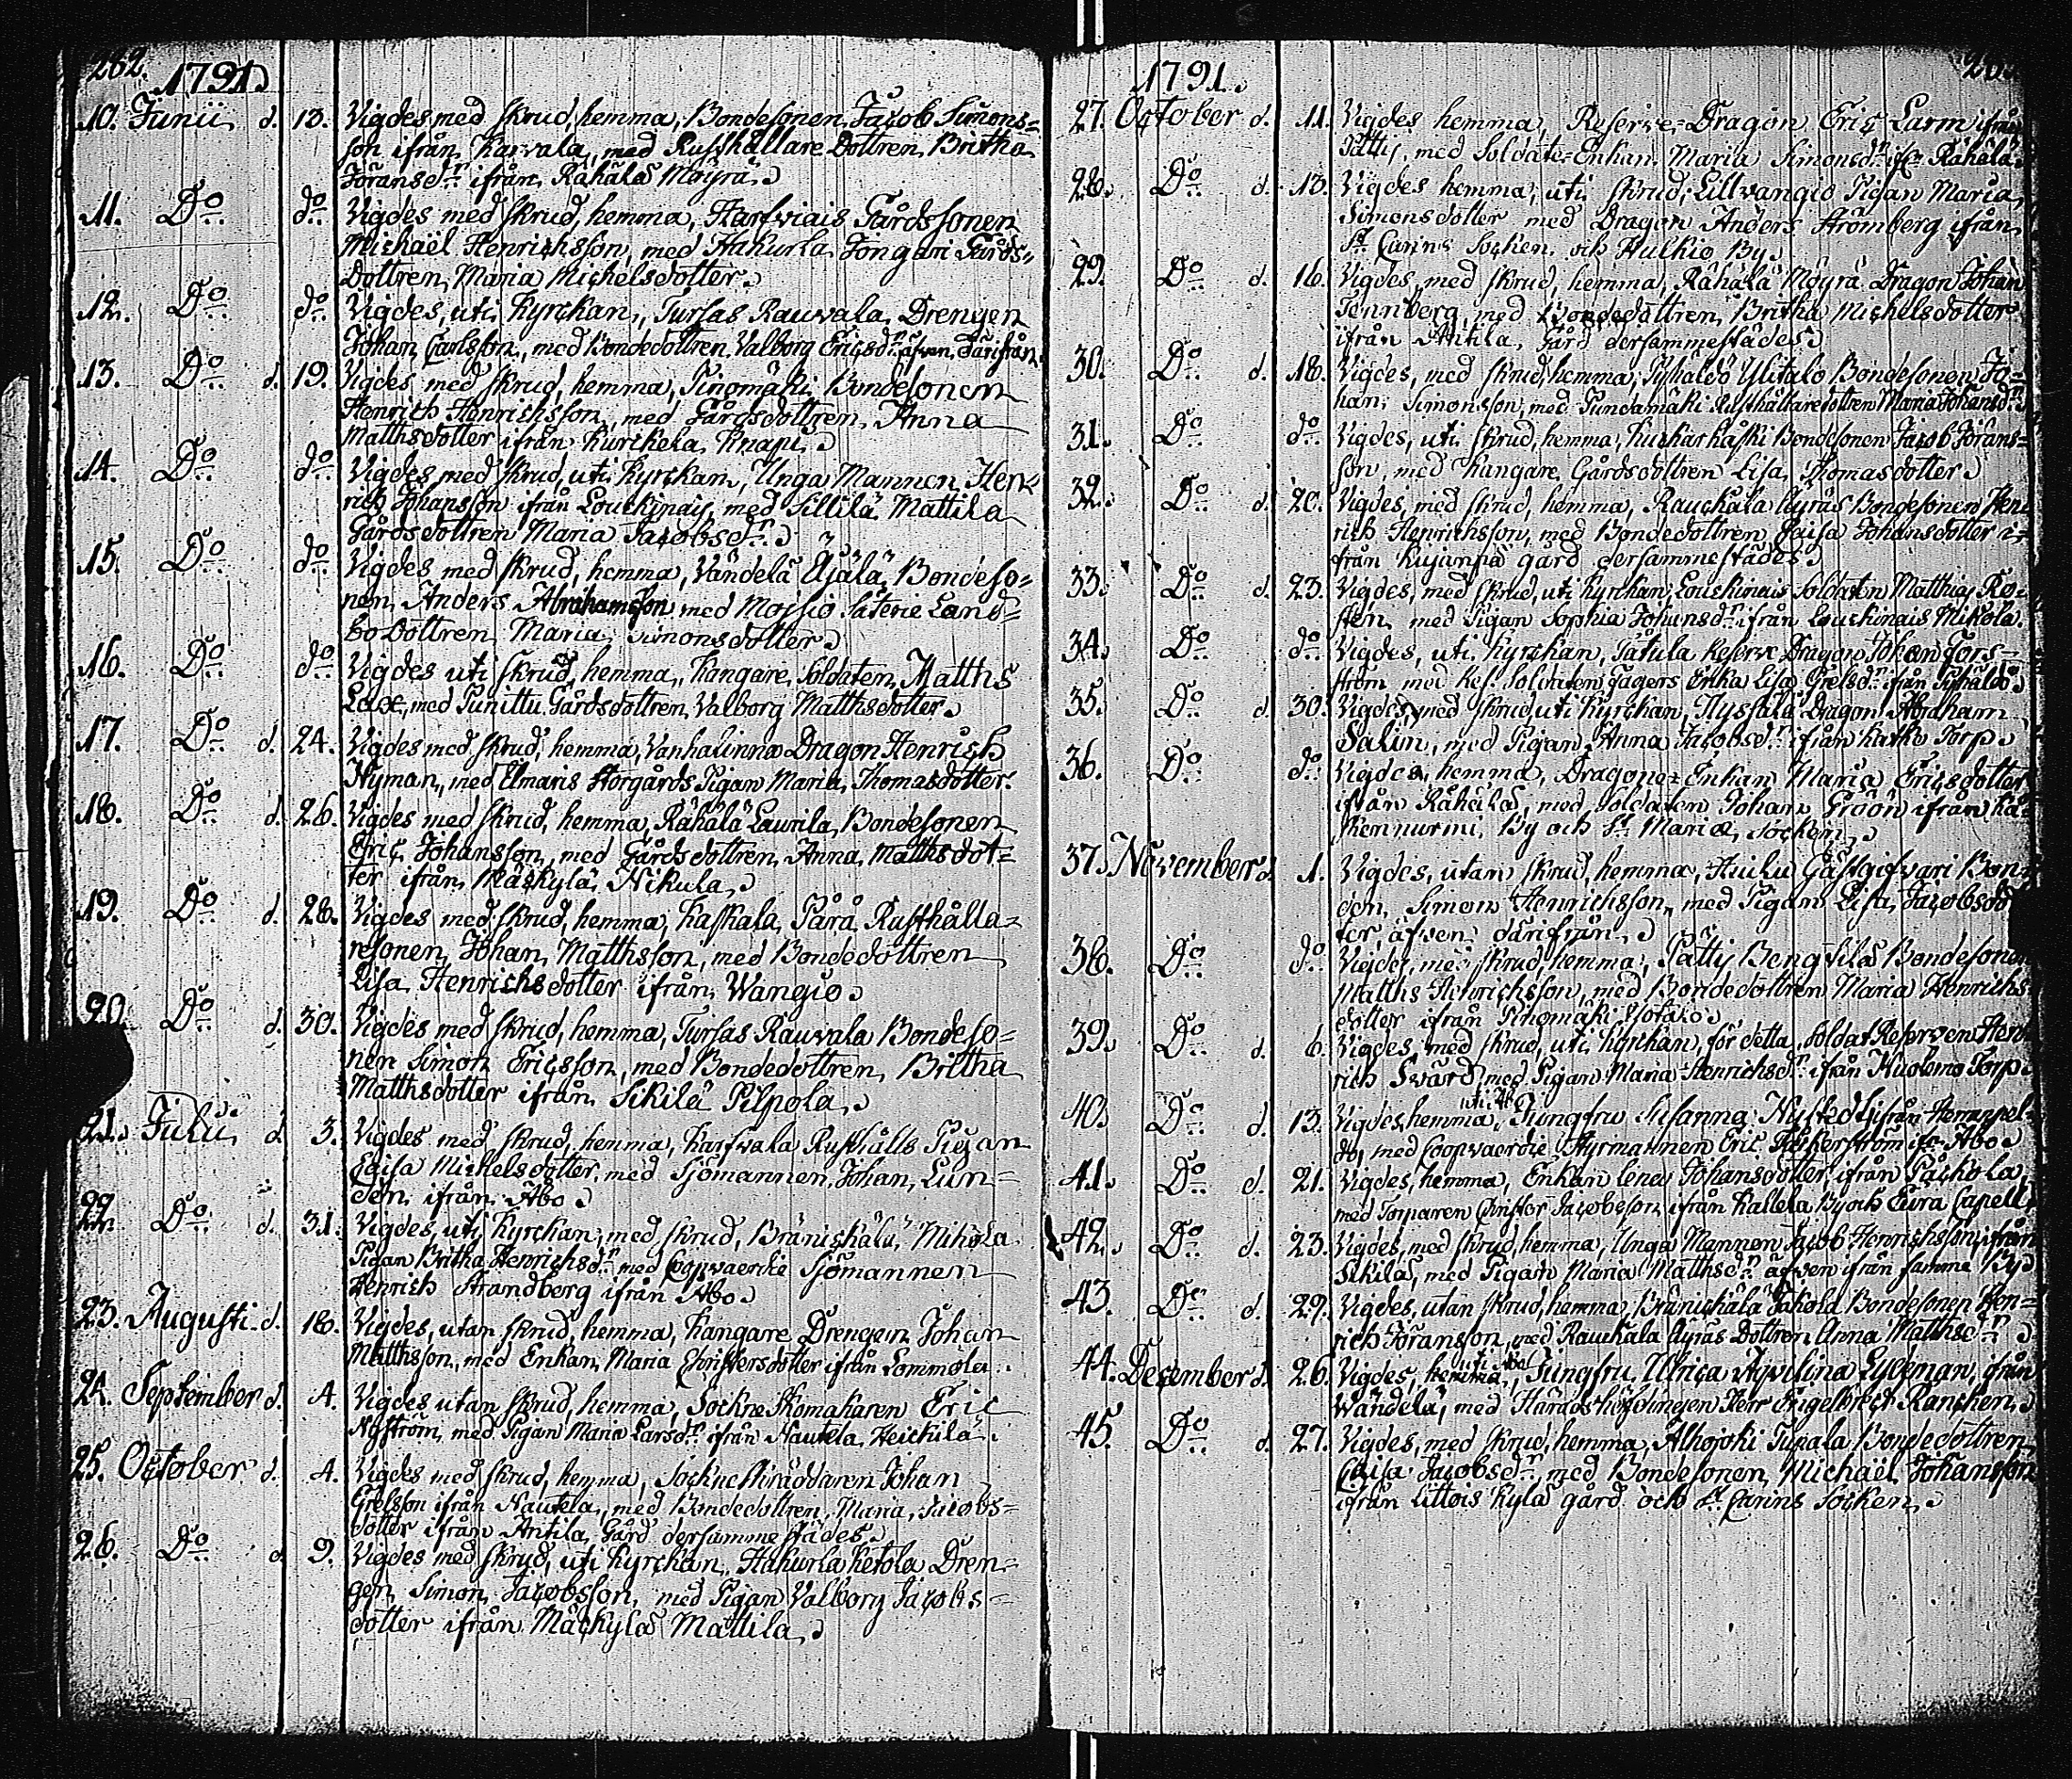 282.
1791.
10. Junii d. 13. Vigdes med skrud, hemma, Bondesonen Jacob Simons=
son ifrån Karvala, med Rusthållare Dottren Britha
Jöransdr ifrån Rähälä Möyrä.
11. Do do Vigdes med skrud, hemma, Harfviais Gårdssonen
Michaël Henrichsson, med Hakurla Jongari Gårds=
Dottren Maria Michelsdotter.
12. Do do Vigdes, uti Kyrckan, Tursas Rauvala Drengen
Johan Carlsson, med Bondedottren Valborg Ericsdr äfven därifrån.
13. Do d. 19. Vigdes med skrud, hemma, Pinomäki Bondesonen
Henrich Henrichsson, med Gårdsdottren Anna
Matthsdotter ifrån Kurckela Knapi.
14. Do do Vigdes med skrud, uti Kyrckan, Unga Mannen Hen=
rich Johansson ifrån Louckinais, med Sillilä Mattila
Gårdsdottren Maria Jacobsdr.
15. Do do Vigdes med skrud, hemma, Vändelä Äjälä Bondeso=
nen Anders Abrahamsson med Moisio Säterie Land=
bo Dottren Maria Simonsdotter.
16. Do do Vigdes uti skrud, hemma, Kangare Soldaten Matths
Lax, med Punittu Gårdsdottren Valborg Matthsdotter.
17. Do d. 24. Vigdes med skrud, hemma, Vanhalinna Dragon Henrich
Nyman, med Elmaris Storgårds Pigan Maria Thomasdotter.
18. Do d. 26. Vigdes med skrud, hemma, Rähälä Laurila Bondesonen
Eric Johansson, med Gårdsdottren Anna Matthsdot=
ter ifrån Mäckylä Nikula.
19. Do d. 28. Vigdes med skrud, hemma, Kaskala Pärä Rusthålla=
resonen Johan Matthsson, med Bondedottren
Lisa Henrichsdotter ifrån Wangio.
20. Do d. 30. Vigdes med skrud, hemma, Tursas Rauvala Bondeso=
nen Simon Ericsson, med Bondedottren Britha
Matthsdotter ifrån Sikilä Pilpola.
21. Julii d. 3. Vigdes med skrud, hemma, Karfvala Rusthålls Pigan
Caisa Michelsdotter, med Sjömannen Johan Lun=
den ifrån Åbo.
22. Do d. 31. Vigdes, uti Kyrckan, med skrud, Bränickälä Mikola
Pigan Britha Henrichsdr med Coopvaerdie Sjömannen
Henrich Strandberg ifrån Åbo.
23. Augusti d. 18. Vigdes, utan skrud, hemma, Kangare Drengen Johan
Matthsson, med Enkan Maria Christersdotter ifrån Lommola.
24. September d. 4. Vigdes utan skrud, hemma, Sockne Skomakaren Eric
Nyström, med Pigan Maria Larsdr ifrån Nautela Heickilä.
25. October d. 4. Vigdes med skrud, hemma, Sockne Skräddaren Johan
Grelsson ifrån Nautela, med Bondedottren Maria Jacobs=
dotter ifrån Antila Gård dersammestädes.
26. Do d. 9. Vigdes med skrud, uti Kyrckan, Hakurla Ketola Dren=
gen Simon Jacobsson, med Pigan Valborg Jacobs=
dotter ifrån Mäckylä Mattila.
1791.
27. October d. 11. Vigdes hemma, Reserve=Dragon Eric Larm ifrån
Pättis, med Soldate=Enkan Maria Simonsdr ifr. Rähälä.
28. Do d. 13. Vigdes hemma, uti skrud, Lillvangio Pigan Maria
Simonsdotter med Dragon Anders Strömberg ifrån
St Carins Socken och Hulkio By.
29. Do d. 16. Vigdes, med skrud, hemma, Rähälä Möyrä Dragon Johan
Tennberg, med Bondedottren Britha Michelsdotter
ifrån Antila Gård dersammestädes.
30. Do d. 18. Vigdes, med skrud, hemma, Pyhäldö Ylitalo Bondesonen Jo=
han Simonsson, med Pundamäki Rusthållaredottren Maria Johansdr.
31. Do do Vigdes, uti skrud, hemma, Kuckarkåski Bondesonen Jacob Jörans=
son, med Kangare Gårdsdottren Lisa Thomasdotter.
32. Do d. 20. Vigdes, med skrud, hemma, Rauckala Äyräs Bondesonen Hen=
rich Henrichsson, med Bondedottren Caisa Johansdotter i=
från Kujanpä gård dersammestädes.
33. Do d. 23. Vigdes, med skrud, uti Kyrckan, Louckinais Soldaten Matthias Ro=
sten, med Pigan Sophia Johansdr ifrån Louckinais Mikola.
34. Do do Vigdes, uti Kyrckan, Tatula Reserve Dragon Johan Fors=
ström med Res. Soldaten Jägers Enka Lisa Grelsdr ifrån Pyhäldö.
35. Do d. 30. Vigdes, med skrud, uti Kyrckan, Nyssala Dragon Abraham
Salin, med Pigan Anna Jacobsdr ifrån Torp.
36. Do do Vigdes, hemma, Dragone=Enkan Maria Ericsdotter
ifrån Rähälä, med Soldaten Johan Gräön ifrån
By och St Mariæ Socken.
37. November d. 1. Vigdes, utan skrud, hemma, Kuku Gästgifvari Bon=
den Simon Henrichsson, med Pigan Lisa Jacobsdot
ter, äfven därifrån.
38. Do do Vigdes, med skrud, hemma, Pättis Bengtilä Bondesonen
Matths Henrichsson, med Bondedottren Maria Henrichs
dotter ifrån Pinomäki Ylotalo.
39. Do d. 6. Vigdes, med skrud, uti Kyrckan, för detta Soldat Reserven Hen
rich Svärd, med Pigan Maria Henrichsdr ifrån Kuolema Torp.
40. Do d. 13. Vigdes hemma, uti Åbo, Jungfru Susanna Nystedt ifrån
med Coopvaerdie Styrmannen Eric ifr. Åbo.
41. Do d. 21. Vigdes, hemma, Enkan Lena Johansdotter ifrån Päckola,
med Torparen Christer Jacobsson ifrån Kallela By och Eura Capell.
42. Do d. 23. Vigdes, med skrud, hemma, Unga Mannen Jacob Henrichsson ifrån
Sikilä, med Pigan Maria Matthsdr äfven ifrån samma By.
43. Do d. 29. Vigdes, utan skrud, hemma, Bränickälä Jakola Bondesonen Hen=
rich Jöransson, med Rauckala Äyräs Dottren Anna Matthsdr.
44. December d. 26. Vigdes, hemma, uti Åbo, Jungfru Ulrica Aqvilina Lydeman, ifrån
Wändelä, med Häradshöfdingen Herr Engelbrect Rancken.
45. Do d. 27. Vigdes, med skrud, hemma, Alhojoki Tupala Bondedottren
Caisa Jacobsdr med Bondesonen Michaël Johansson
ifrån Littois Kylä gård och St Carins Socken.